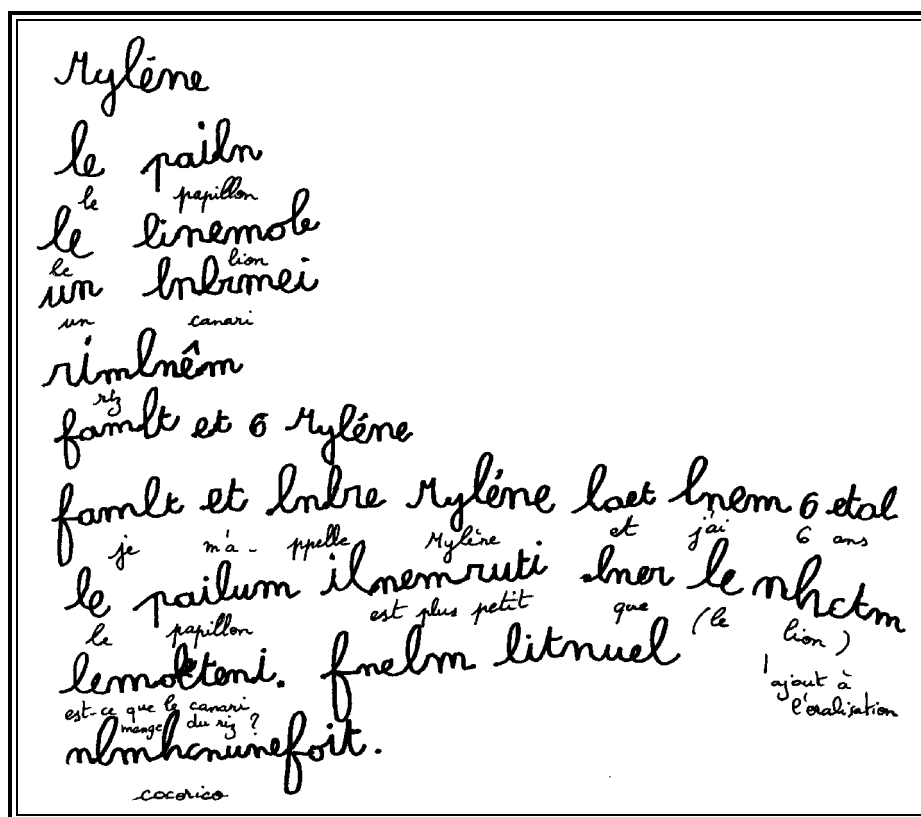 Mylène
le pailn
le papillon
le linemole
le lion
un lnbrmei
un canari
rimlnêm
riz
famlt et 6 Mylène
famlt et lnbre Mylène laet lnem 6 etal
je m'a- ppelle Mylène et j'ai 6 ans
le pailum ilnemruti lner le nhctm
le papillon est plus petit que (le lion)
lemolteni. fnelm litnuel
ajout à
l'oralisation
est-ce que le canari
mange du riz ?
nlmhcnunefoit.
cocorico